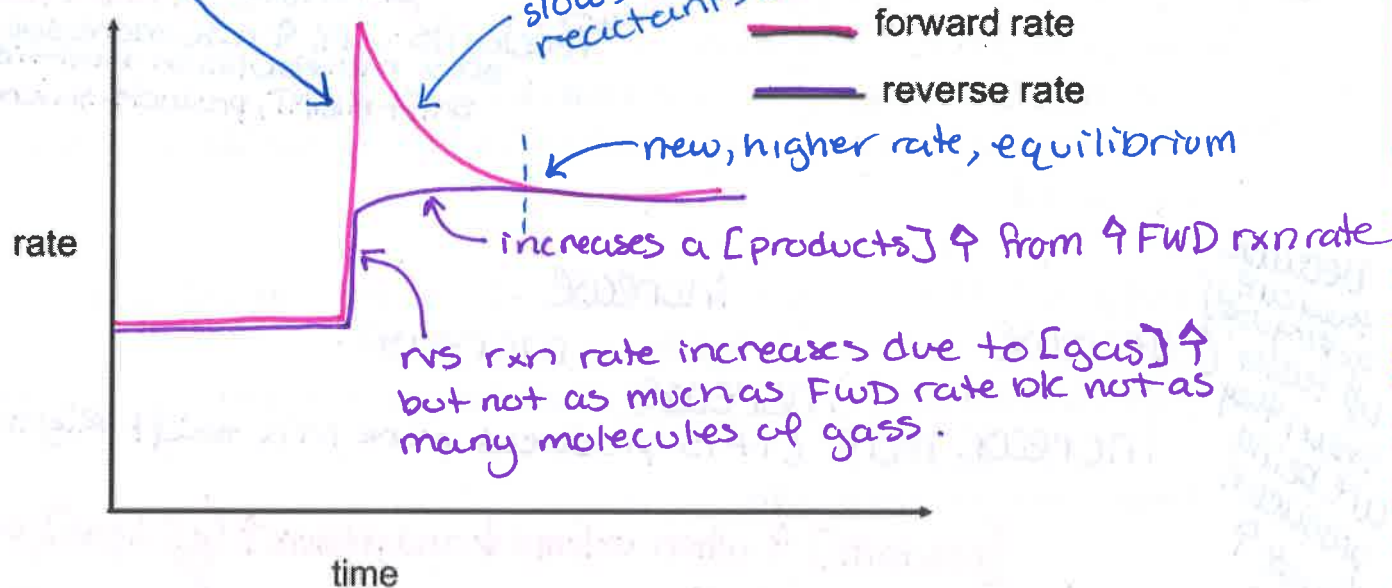 slow
reactant
forward rate
reverse rate
new, higher rate, equilibrium
rate
increases a [products] ↑ from ↑ FWD rxn rate
rvs rxn rate increases due to [gas] ↑
but not as much as FWD rate bk not as
many molecules of gass.
time